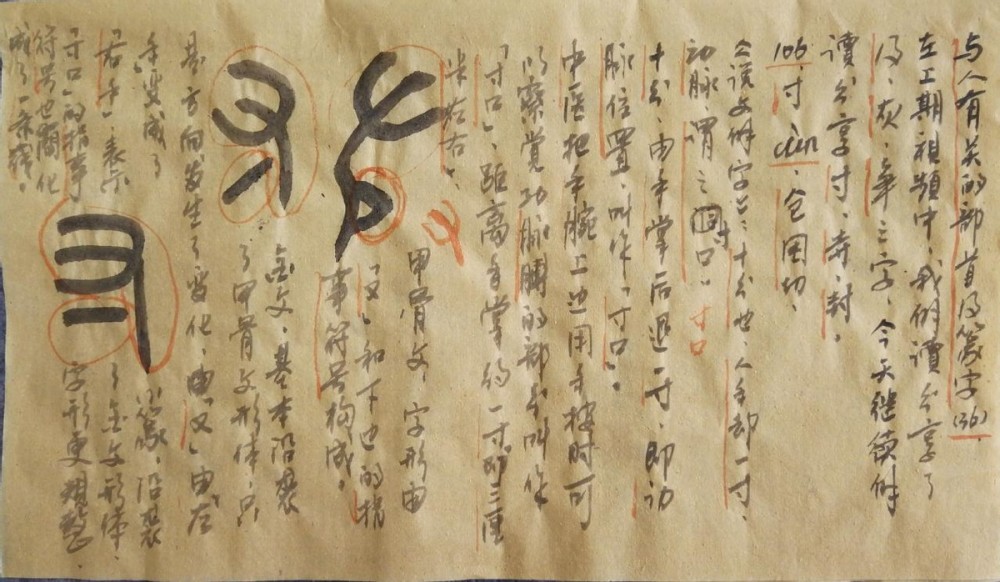 与人有关的部首及篆字(36)，
在上期视频中，我们读分享了
及、灰、隼三字，今天继续解
读分享寸、寺、封。
106 寸，cùn，仓困切，
《说文解字》云：十分也，人手却一寸，
动脉，谓之寸口。寸口
十分，由手掌后退一寸，即动
脉位置，叫作「寸口」。
中医把手腕上边用手按时可
以察觉动脉脯的部分叫作
「寸口」，距离手掌约一寸，即三厘
米左右。
甲骨文，字形由
「又」和下边的指
事符号构成。
金文，基本沿袭
了甲骨文形体，只
是方向发生了变化，由「又」由左
手变成了
「右手」，表示
「寸口」的指事
符号也简化
成了一条线。
小篆，沿袭
了金文形体，
字形更规整。